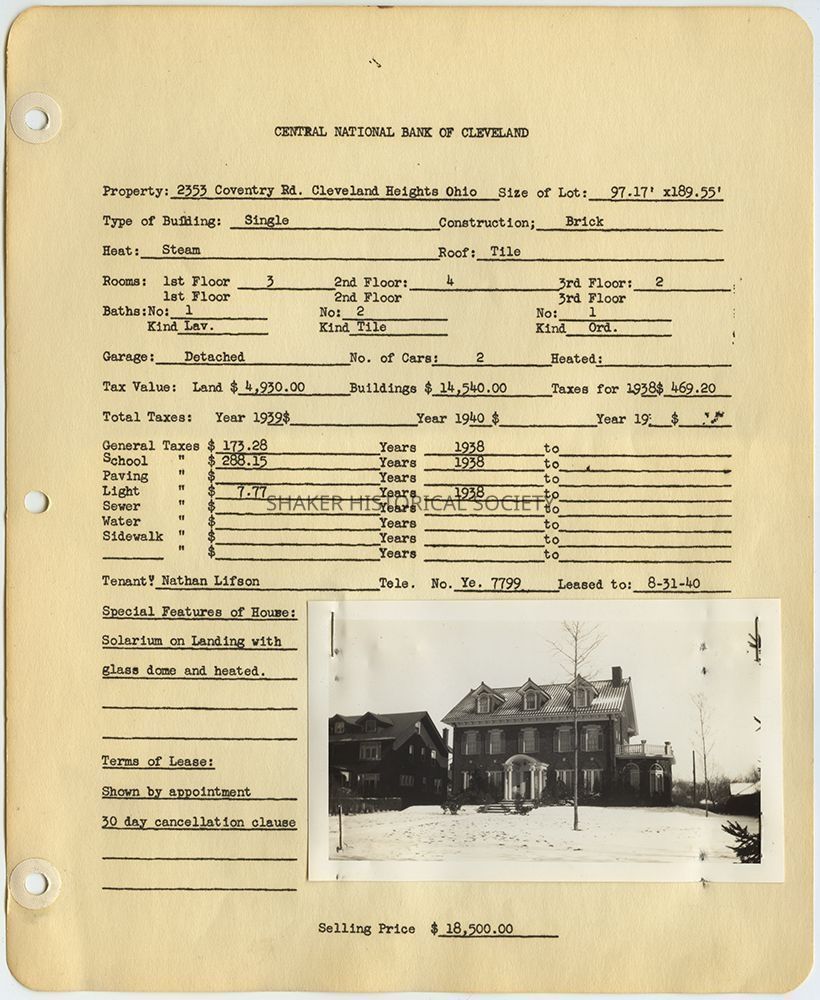 CENTRAL NATIONAL BANK OF CLEVELAND
Property: 2353 Coventry Rd. Cleveland Heights Ohio Size of Lot: 97.17' x189.55'
Type of Building: Single Construction; Brick
Heat: Steam Roof: Tile
Rooms: 1st Floor 3 2nd Floor: 4 3rd Floor: 2
1st Floor 2nd Floor 3rd Floor
Baths:No: 1 No: 2 No: 1
Kind Lav. Kind Tile Kind Ord.
Garage: Detached No. of Cars: 2 Heated:
Tax Value: Land $ 4,930.00 Buildings $ 14,540.00 Taxes for 1938$ 469.20
Total Taxes: Year 1939$ Year 1940 $ Year 19 $
General Taxes $ 173.28 Years 1938 to
School " $ 288.15 Years 1938 to
Paving " $ Years to
Light " $ 7.77 Years 1938 to
SHAKER HISTORICAL SOCIETY
Sewer " $ Years to
Water " $ Years to
Sidewalk " $ Years to
" $ Years to
Tenant: Nathan Lifson Tele. No. Ye. 7799 Leased to: 8-31-40
Special Features of House:
Solarium on Landing with
glass dome and heated.
Terms of Lease:
Shown by appointment
30 day cancellation clause
Selling Price $ 18,500.00